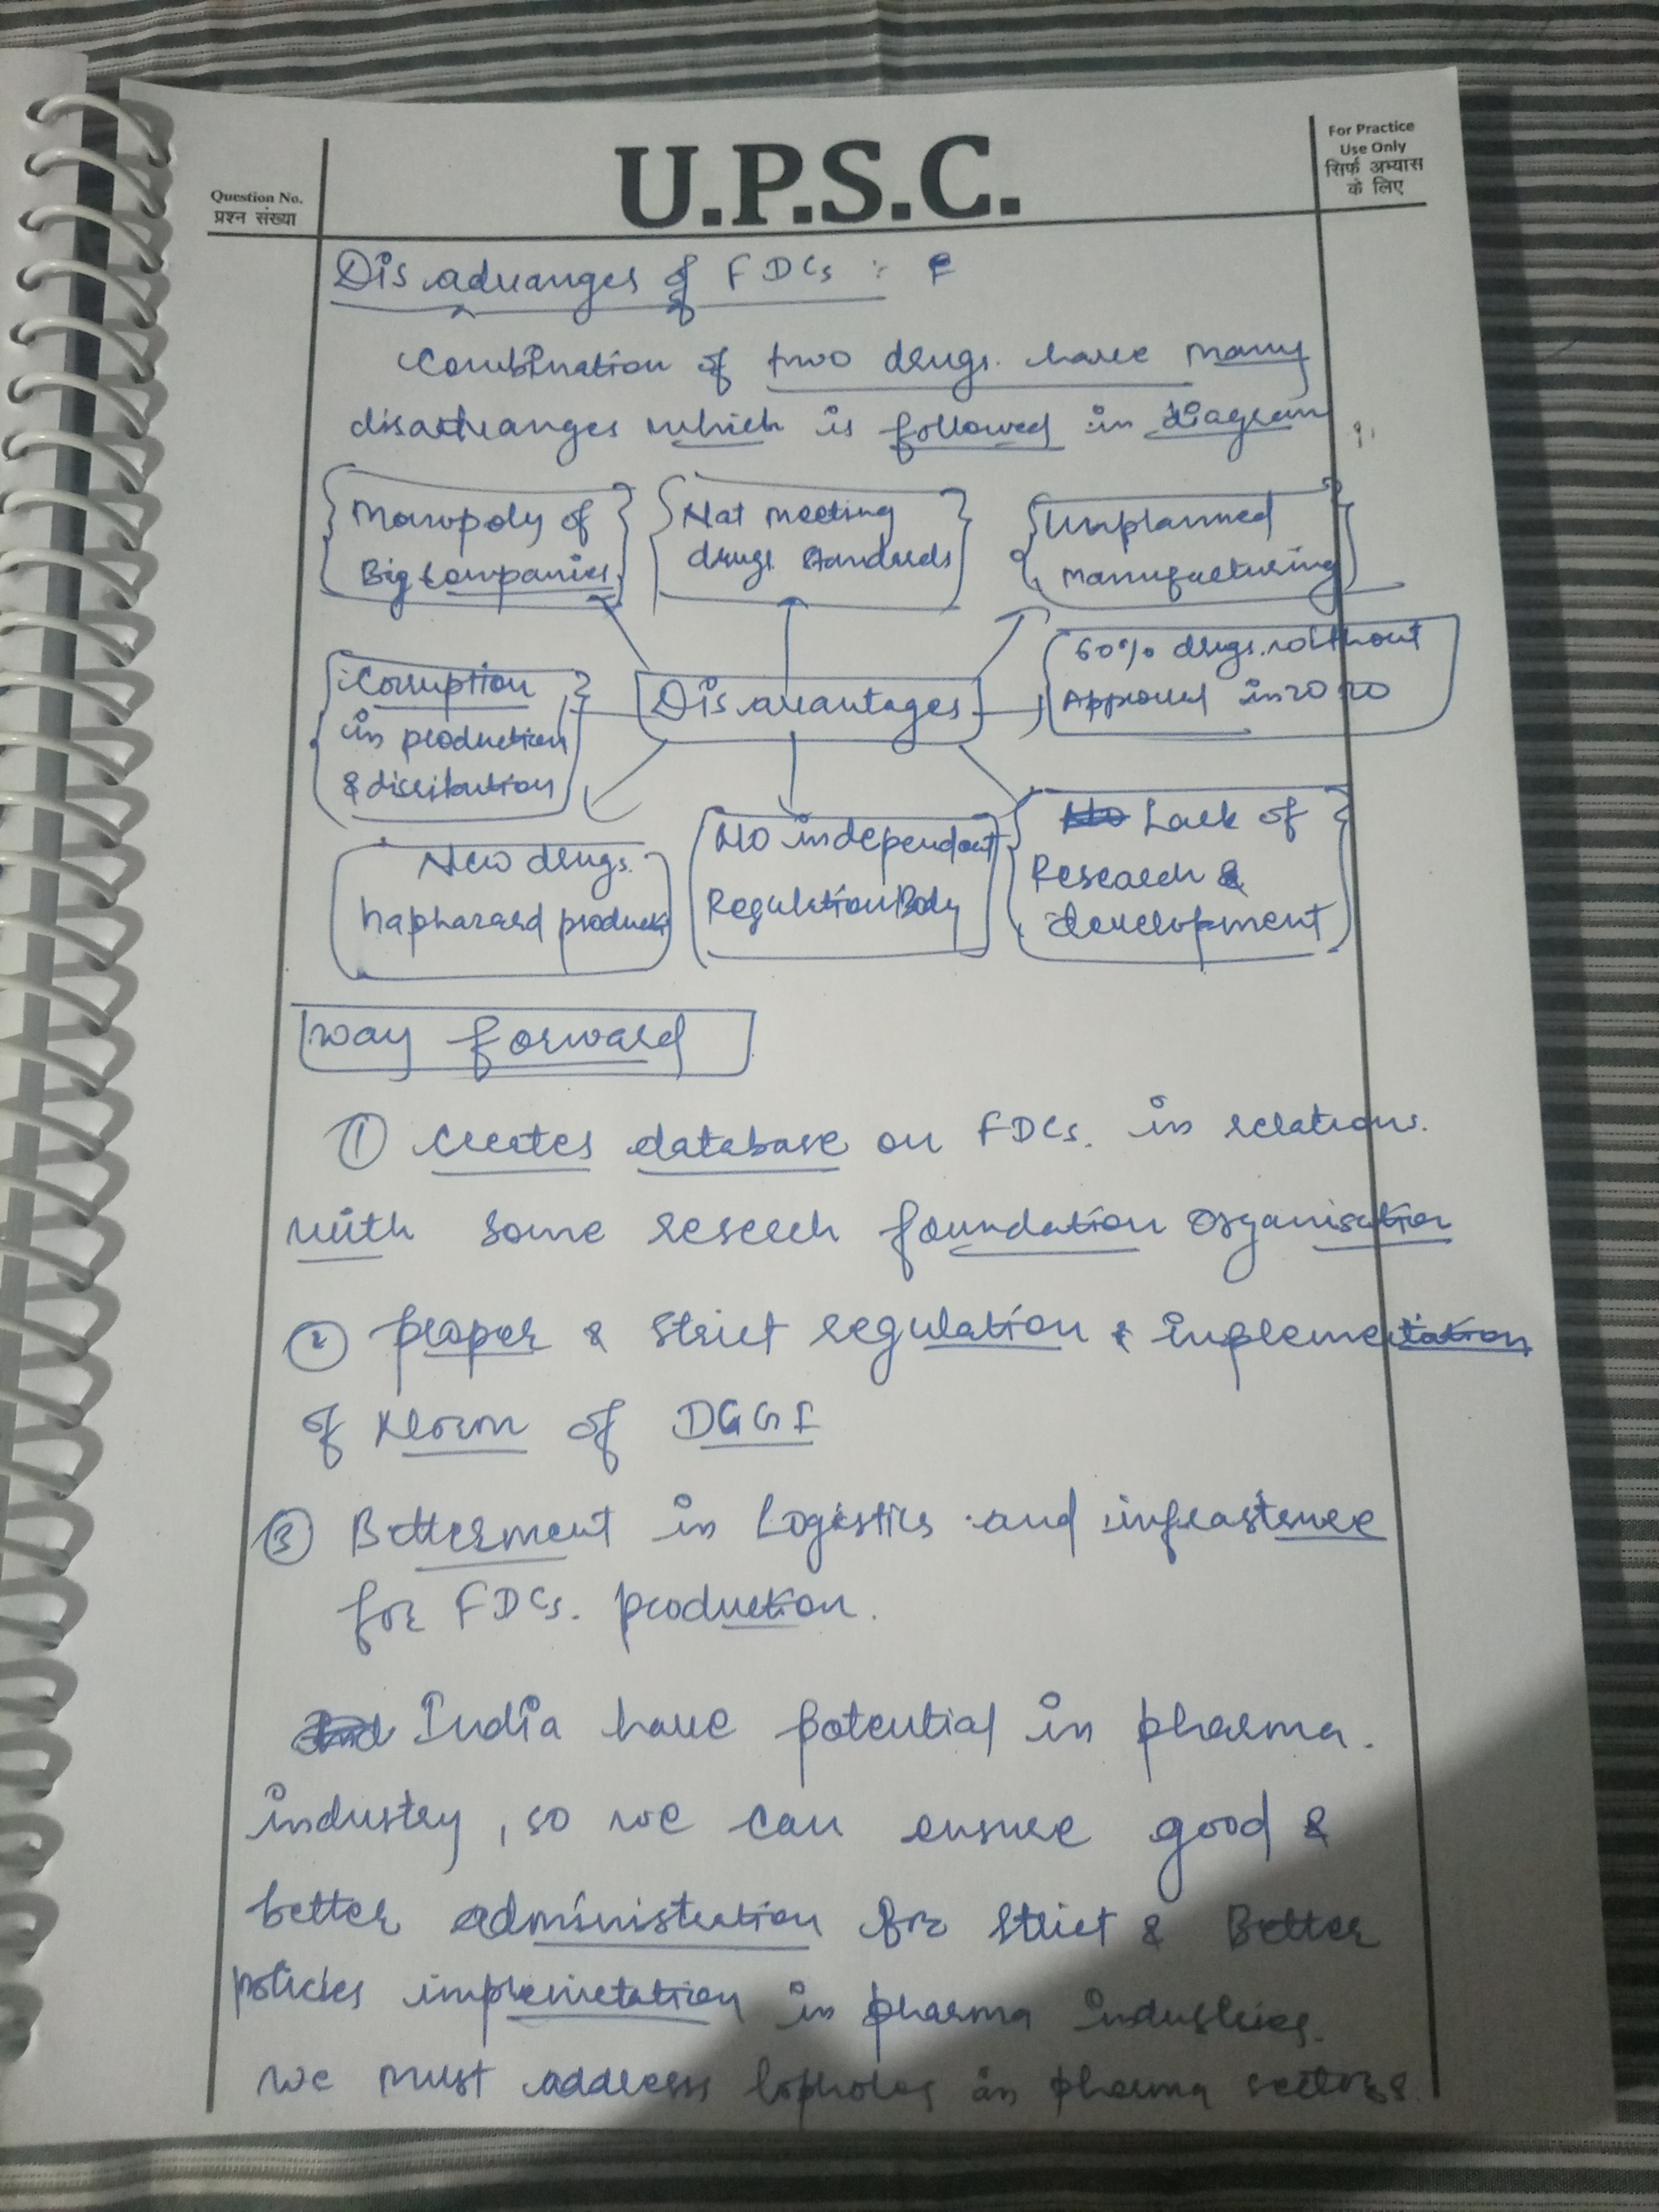 Question No.
प्रश्न संख्या
U.P.S.C.
For Practice
Use Only
सिर्फ अभ्यास
के लिए
Disadvanges of FDCs :
Combination of two drugs have many
disadvanges which is followed in diagram
Monopoly of
Big Companies
Not meeting
drugs standards
Unplanned
manufacturing
Corruption
in production
& disribution
Disavantages
60% drugs without
Approval in 2020
New drugs
haphazard product
No independent
Regulation Body
Lack of
Research &
development
Way forward
① Creates database on FDCs. in relations.
with some reserch foundation organisation
② proper & strict regulation & implemetation
of Norm of DGGI
③ Betterment in Logistics and infrasture
for FDCs. production.
India have potential in pharma.
industry, so we can ensure good &
better administration for strict & Better
policies implemetation in pharma industries.
we must address lopholes in pharma sectors.